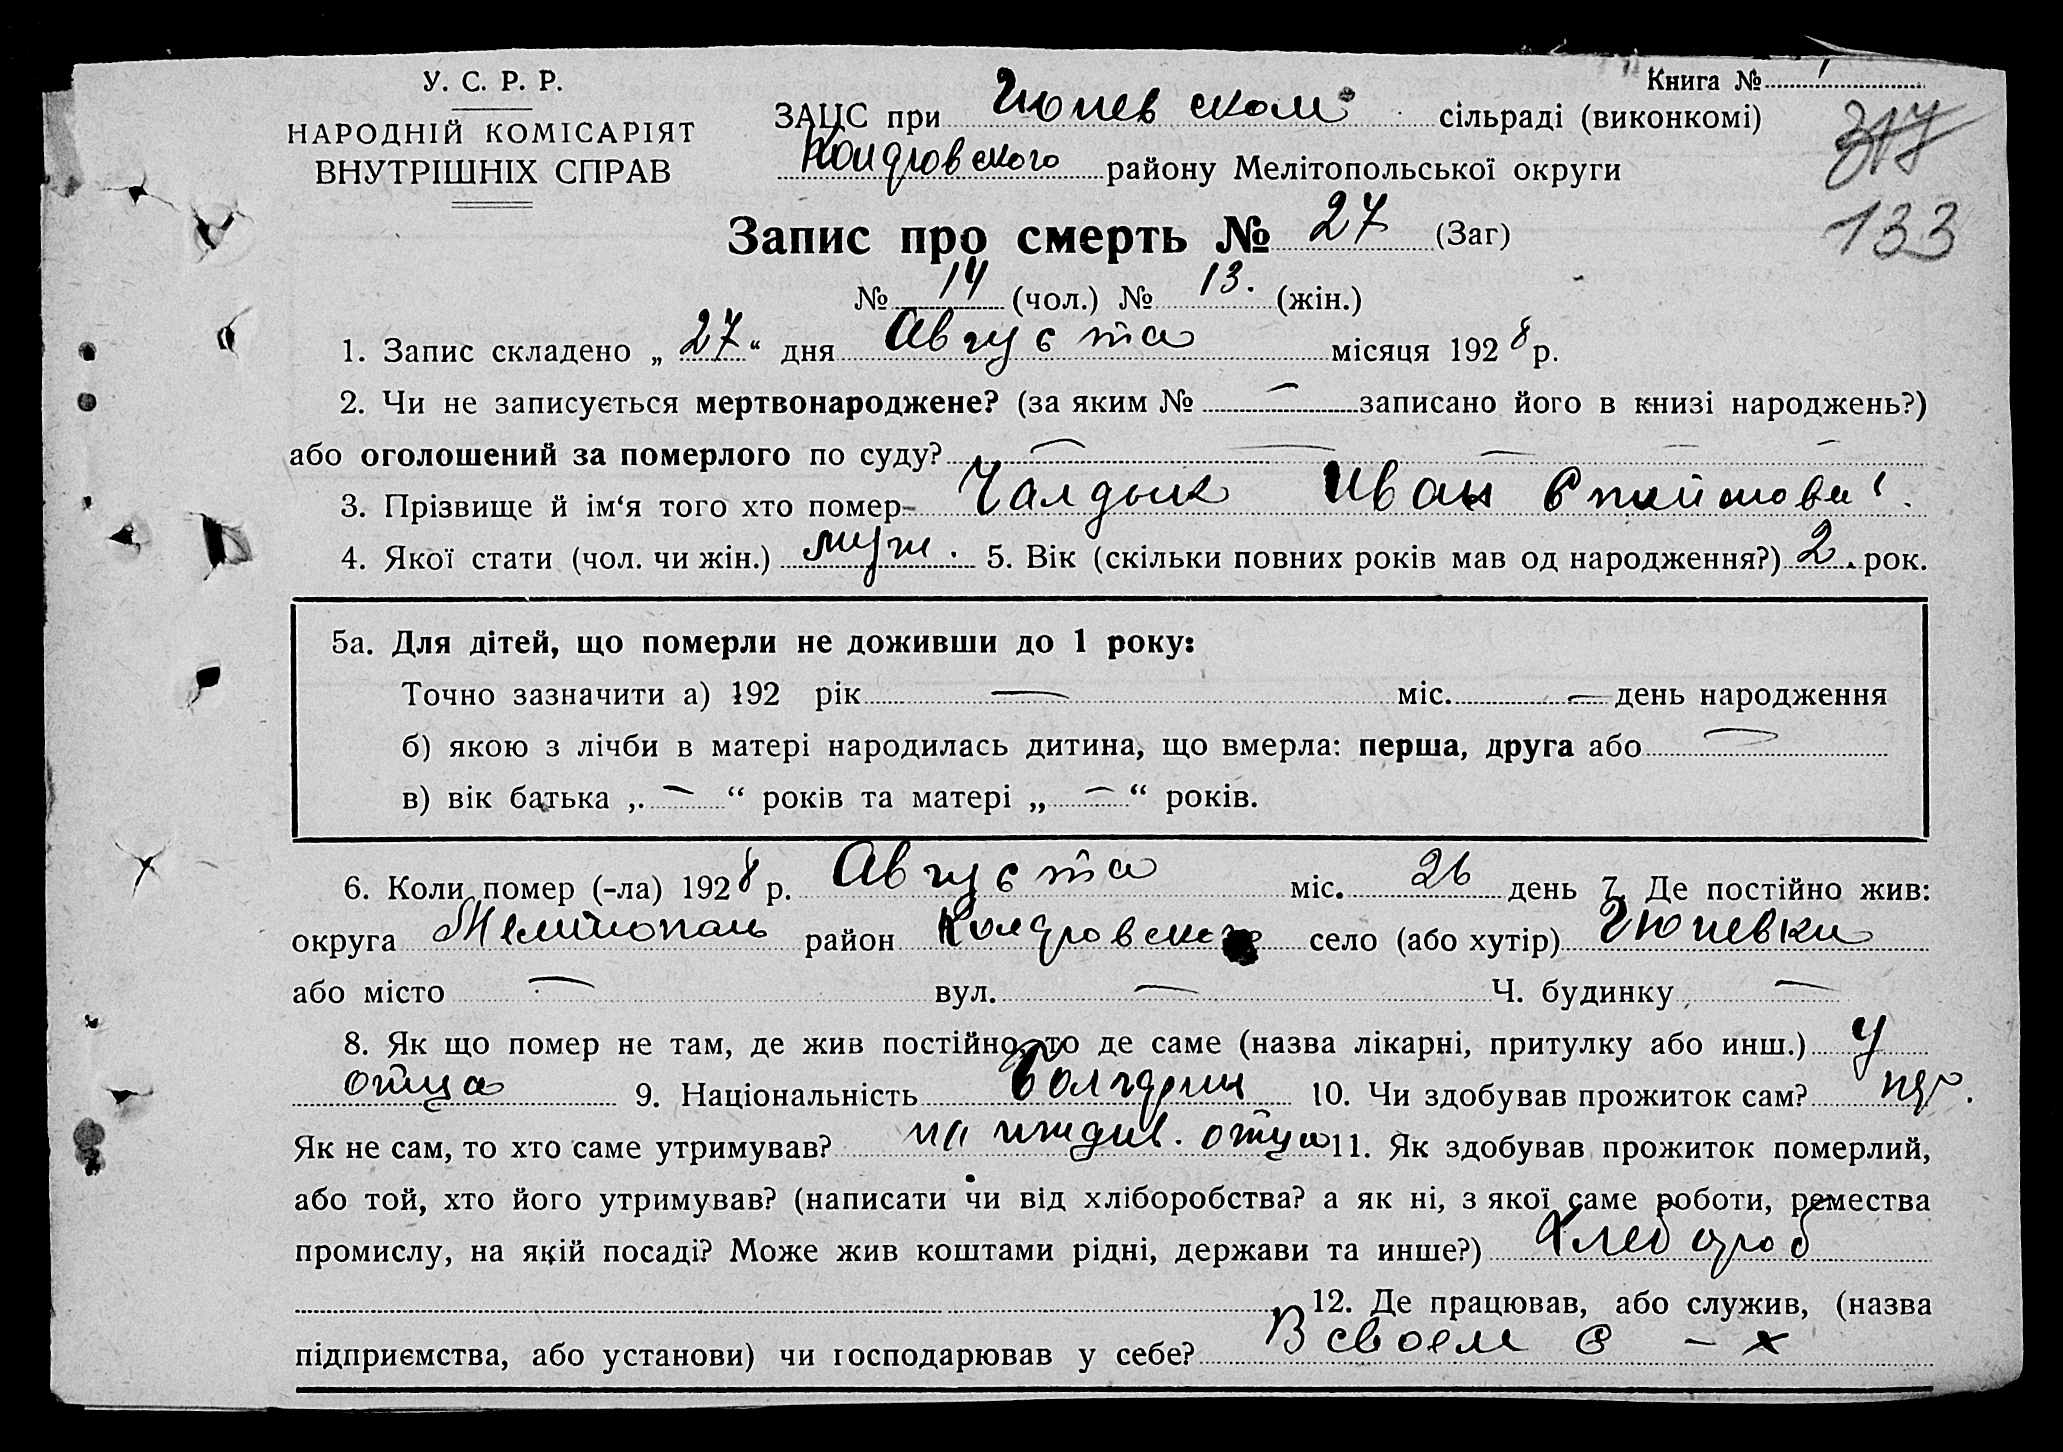 У. С. Р. Р.
НАРОДНІЙ КОМІСАРІЯТ
ВНУТРІШНІХ СПРАВ
Книга № 1
ЗАЦС при Гюневском сільраді (виконкомі)
Колдровского району Мелітопольської округи
317
133
Запис про смерть № 27 (Заг)
№ 14 (чол.) № 13. (жін.)
1. Запис складено „ 27 “ дня Августа місяця 1928 р.
2. Чи не записується мертвонароджене? (за яким № — записано його в книзі народжень?)
або оголошений за померлого по суду? — — — — —
3. Прізвище й ім‘я того хто помер- Чалдык Иван
4. Якої стати (чол. чи жін.) муж. 5. Вік (скільки повних років мав од народження?) 2. рок.
5а. Для дітей, що померли не доживши до 1 року:
Точно зазначити а) 192 рік — міс. — день народження
б) якою з лічби в матері народилась дитина, що вмерла: перша, друга або —
в) вік батька ,. — “ років та матері „ — “ років.
6. Коли помер (-ла) 1928 р. Августа міс. 26 день 7. Де постійно жив:
округа Мелитополь район Колдровского село (або хутір) Гюневки
або місто — вул. — Ч. будинку —
8. Як що помер не там, де жив постійно, то де саме (назва лікарні, притулку або инш.) у
отца 9. Національність Болгарин 10. Чи здобував прожиток сам?
Як не сам, то хто саме утримував? на иждив. отца 11. Як здобував прожиток померлий,
або той, хто його утримував? (написати чи від хліборобства? а як ні, з якої саме роботи, ремества
промислу, на якій посаді? Може жив коштами рідні, держави та инше?) Хлебороб
12. Де працював, або служив, (назва
підприємства, або установи) чи господарював у себе? В своем с - х